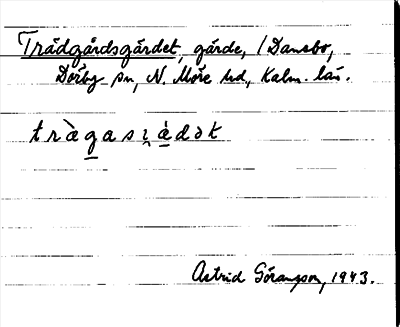 Trädgårdsgärdet, gärde, /Dansbo,
Dörby sn, N. Möre hd, Kalm. län.
Astrid Göransson, 1943.